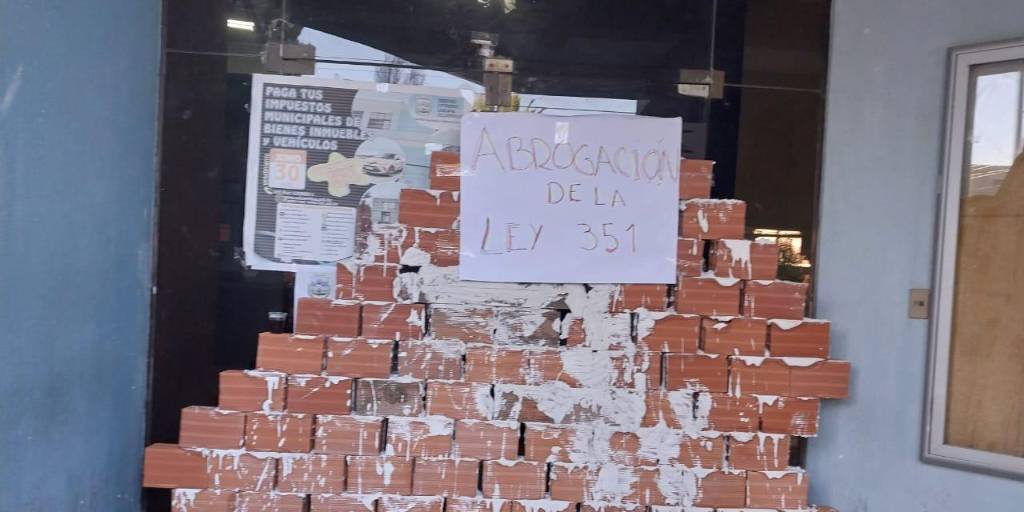 PAGA TUS
IMPUESTOS
MUNICIPALES DE
BIENES INMUEBLES
y VEHÍCULOS
30
ABROGACIÓN
DE LA
LEY 351